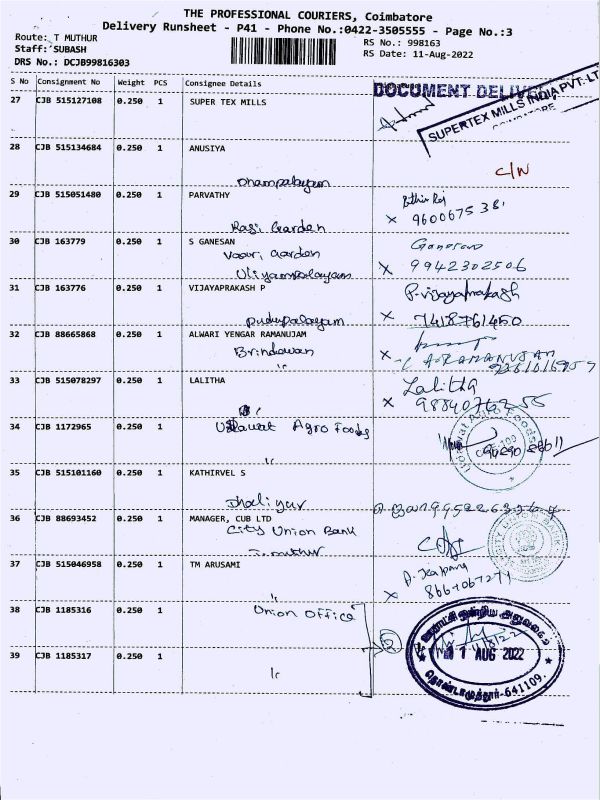 THE PROFESSIONAL COURIERS, Coimbatore
Delivery Runsheet - P41 - Phone No.:0422-3505555 - Page No.:3
Route: T MUTHUR
Staff: SUBASH
DRS No.: DCJB99816303
RS No.: 998163
RS Date: 11-Aug-2022
S No Consignment No Weight PCS Consignee Details
DOCUMENT DELIVE
SUPERTEX MILLS INDIA PVT. LT
27 CJB 515127108 0.250 1 SUPER TEX MILLS
28 CJB 515134684 0.250 1 ANUSIYA
C/N
29 CJB 515051480 0.250 1 PARVATHY
Garden
x 9600675381
30 CJB 163779 0.250 1 S GANESAN
Ganesan
Garden
x 9942302506
Uliyampalayam
31 CJB 163776 0.250 1 VIJAYAPRAKASH P
P. Vijayaprakash
Pudupalayam
x 7418761450
32 CJB 88665868 0.250 1 ALWARI YENGAR RAMANUJAM
Brindavan
33 CJB 515078297 0.250 1 LALITHA
Lalitha
x 9884076255
34 CJB 1172965 0.250 1 Agro Foods
35 CJB 515101160 0.250 1 KATHIRVEL S
36 CJB 88693452 0.250 1 MANAGER, CUB LTD
City Union Bank
T. muthur
37 CJB 515046958 0.250 1 TM ARUSAMI
38 CJB 1185316 0.250 1 Union Office
2
ஊராட்சி ஒன்றிய அலுவலகம்
11 AUG 2022
தொண்டாமுத்தூர்-641109.
39 CJB 1185317 0.250 1